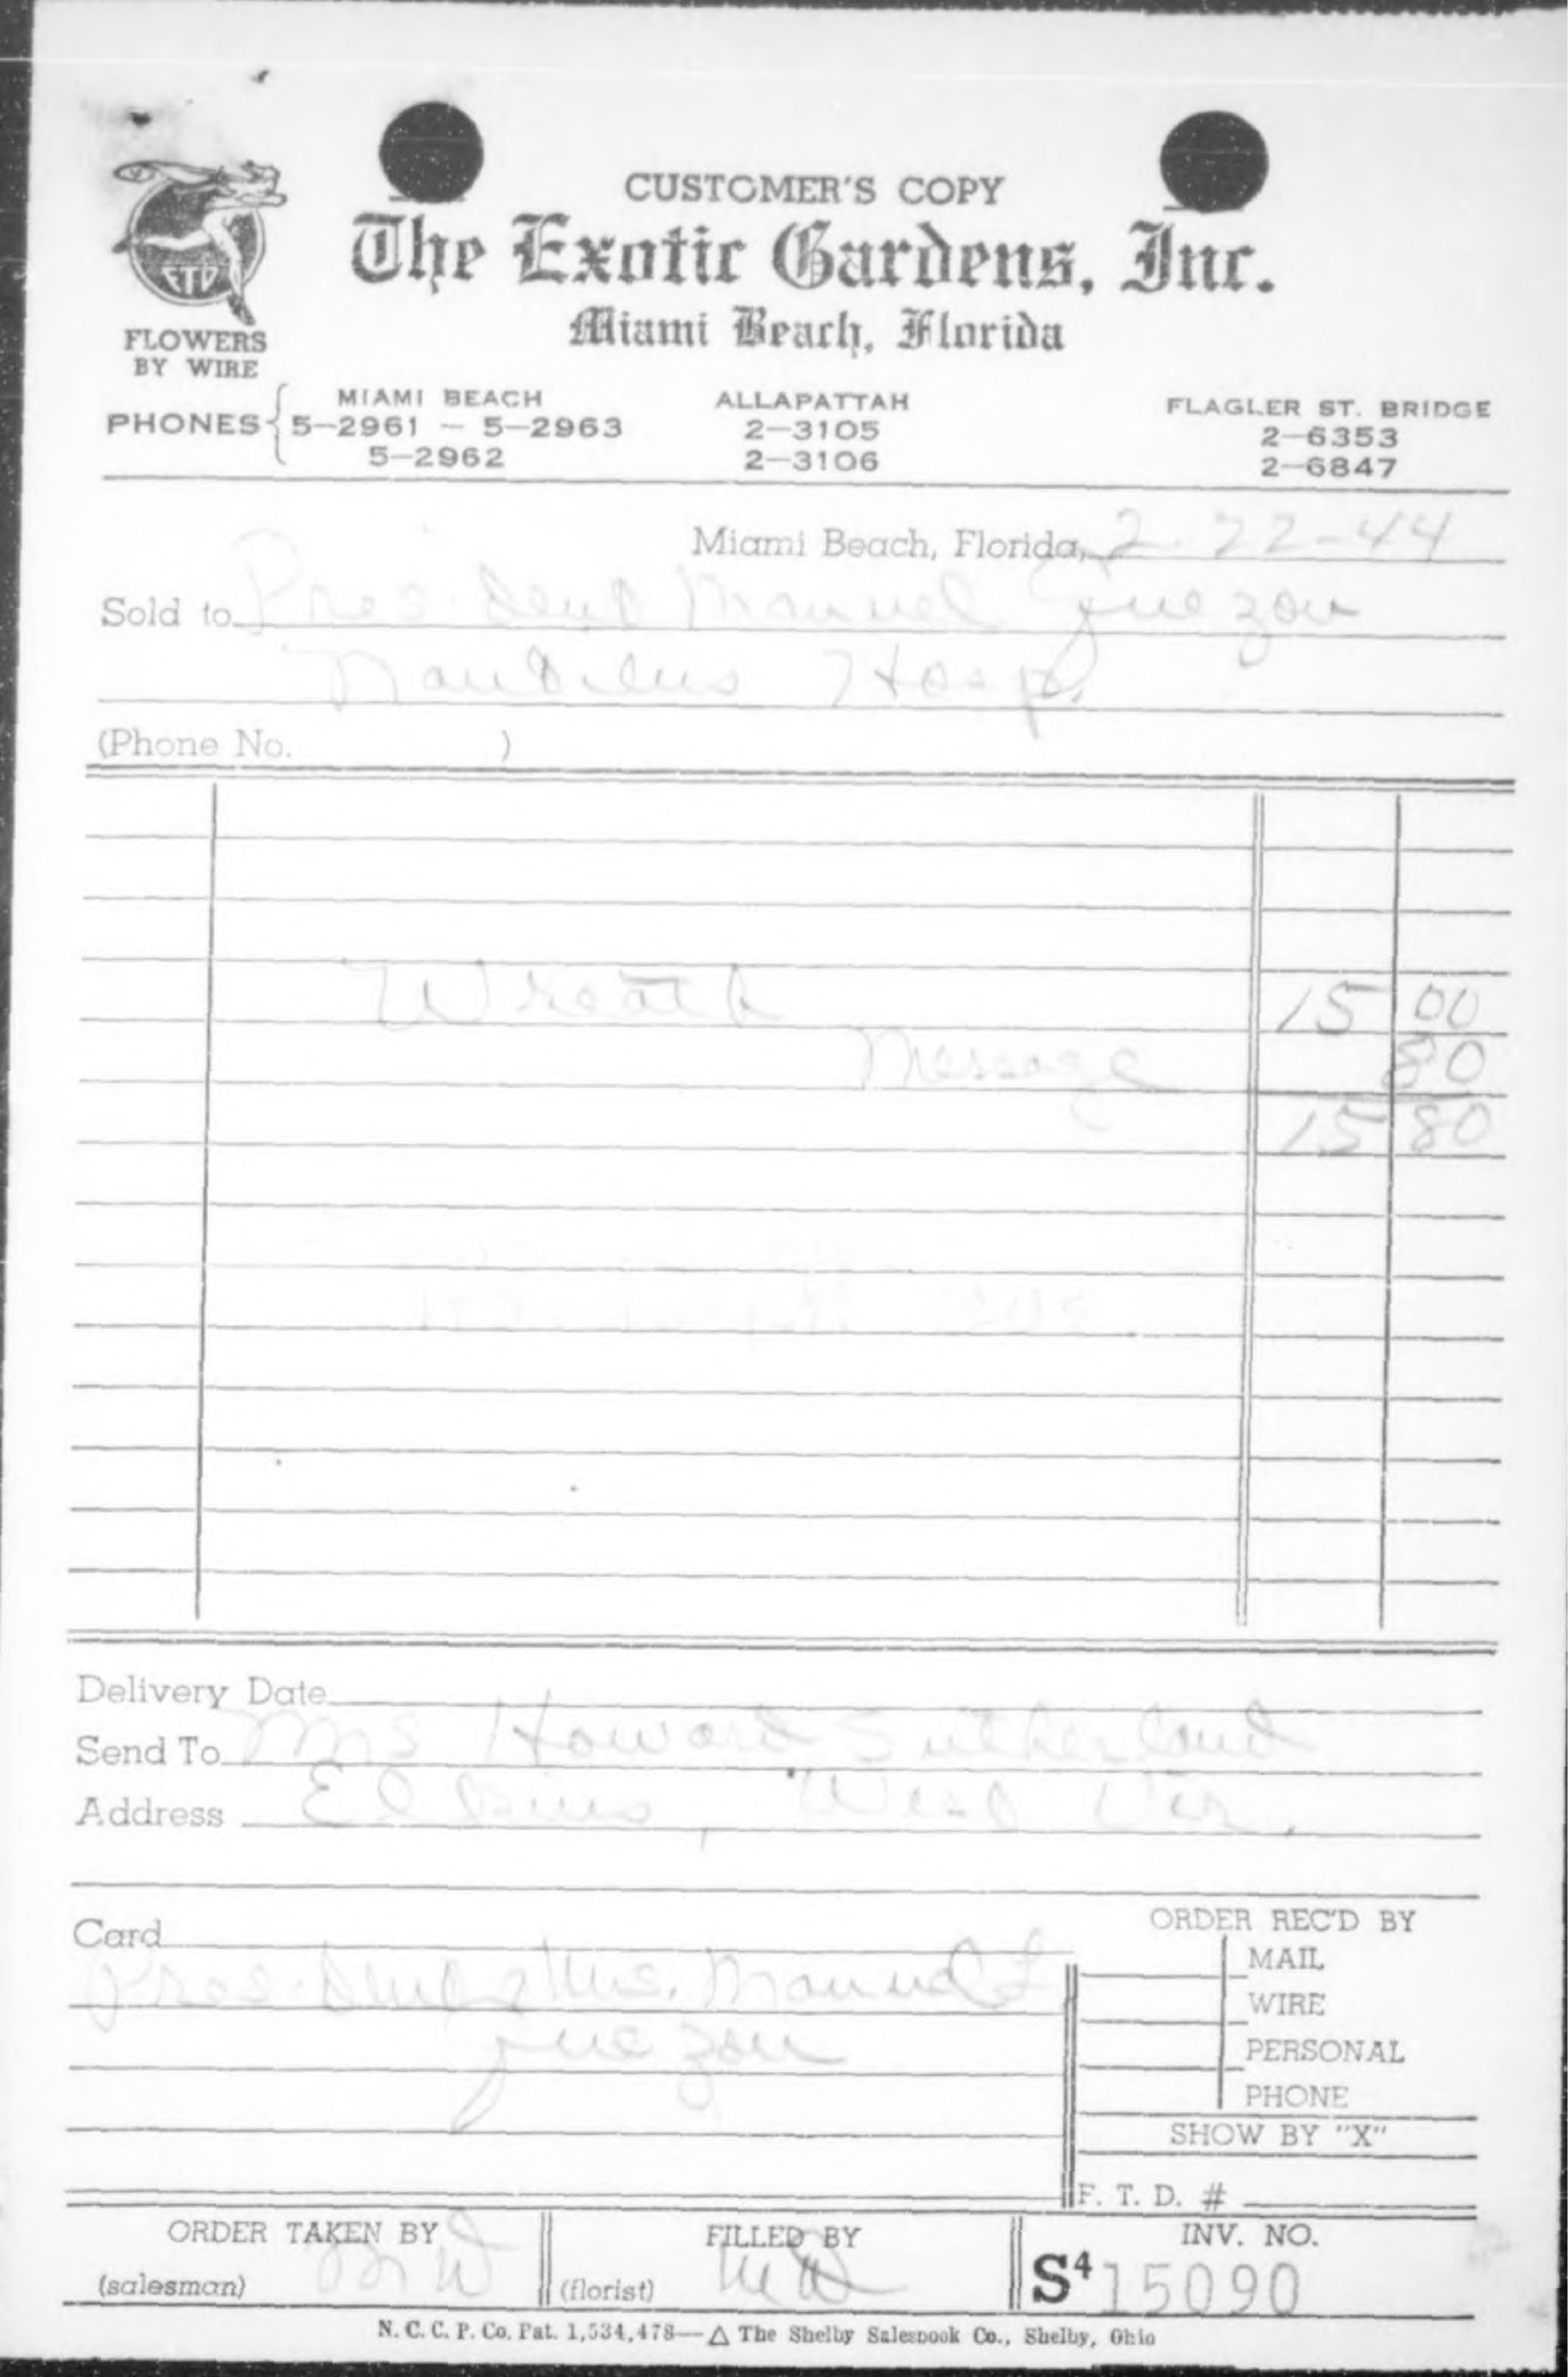 CUSTOMER'S COPY
The Exotic Gardens, Inc.
Miami Beach, Florida
FTD
FLOWERS
BY WIRE
PHONES
MIAMI BEACH ALLAPATTAH FLAGLER ST. BRIDGE
5-2961 - 5-2963 2-3105 2-6353
5-2962 2-3106 2-6847
Miami Beach, Florida, 2-22-44
Sold to President Manuel Quezon
Nautilus Hosp.
(Phone No. )
Wreath 15 00
Message 80
15 80
Delivery Date
Send To Mrs Howard Sutherland
Address Elkins, West Vir.
Card
President & Mrs. Manuel L
Quezon
ORDER REC'D BY
MAIL
WIRE
PERSONAL
PHONE
SHOW BY "X"
F. T. D. #
ORDER TAKEN BY FILLED BY INV. NO.
(salesman) (florist) S4 15090
N. C. C. P. Co. Pat. 1,534,478—△ The Shelby Salesbook Co., Shelby, Ohio